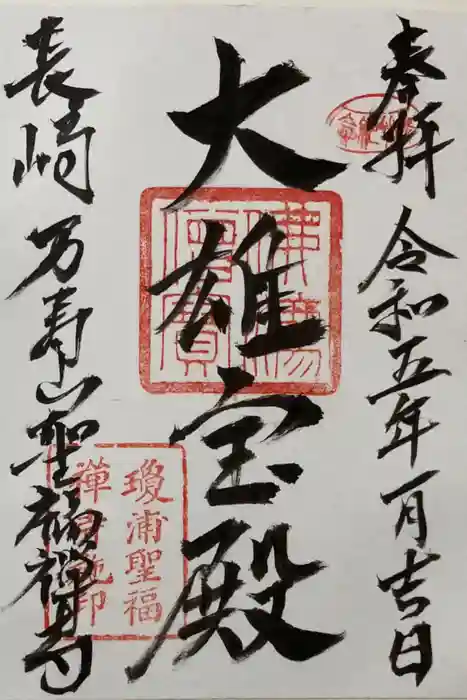 奉拝 令和五年一月吉日
大雄宝殿
長崎 万寿山聖福禅寺
瓊浦聖福